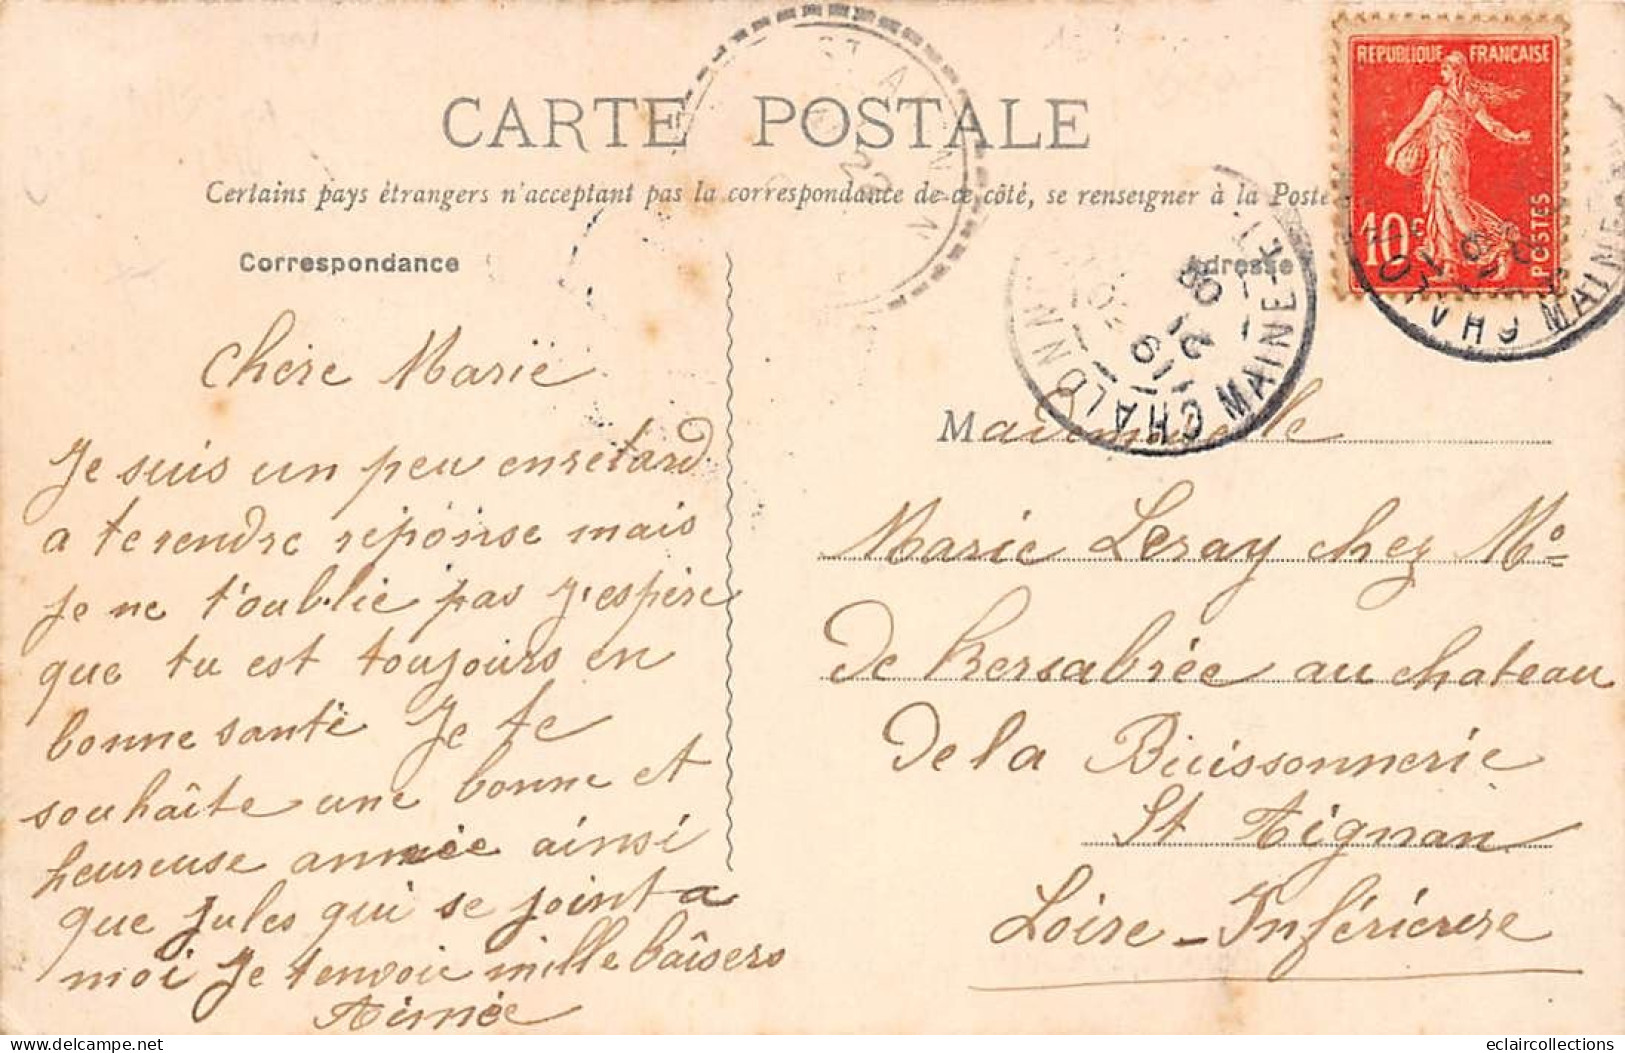 CARTE POSTALE
Certains pays étrangers n'acceptant pas la correspondance de ce côté, se renseigner à la Poste
Correspondance
Chère Marië
Je suis un peu en retard.
a te rendre réponse mais
je ne t'oublie pas J'espère
que tu est toujours en
bonne santé Je te
souhaîte une bonne et
heureuse année ainsi
que Jules qui se joint a
moi Je tenvoie mille baîsers
Aimée
Adresse
Mademoiselle
Marie Leray chez Mº
De Kersabiée au chateau
De la Buissonnerie
St Aignan
Loire-Inférieure
REPUBLIQUE FRANÇAISE
10c
POSTES
CHALONNES
MAINE-ET-
6
2
08
CHALONNES
MAINE
ST AIGNAN
22
delcampe.net
eclaircollections